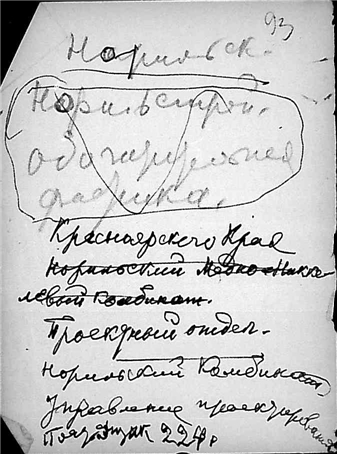 93
Норильск.
Норильстрой.
обогатительная
фабрика.
Красноярского Края
Норильский Медно-Никке-
левый комбинат.
Проектный отдел.
Норильский Комбинат
Управление проектирования
224